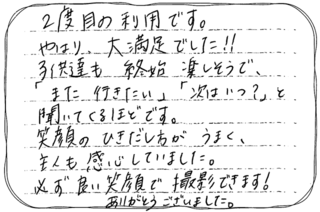 2度目の利用です。
やはり、大満足でした!!
子供達も 終始 楽しそうで、
「また 行きたい」「次はいつ?」と
聞いてくるほどです。
笑顔の ひきだし方が うまく、
主人も 感心していました。
必ず 良い 笑顔で 撮影できます!
ありがとうございました。